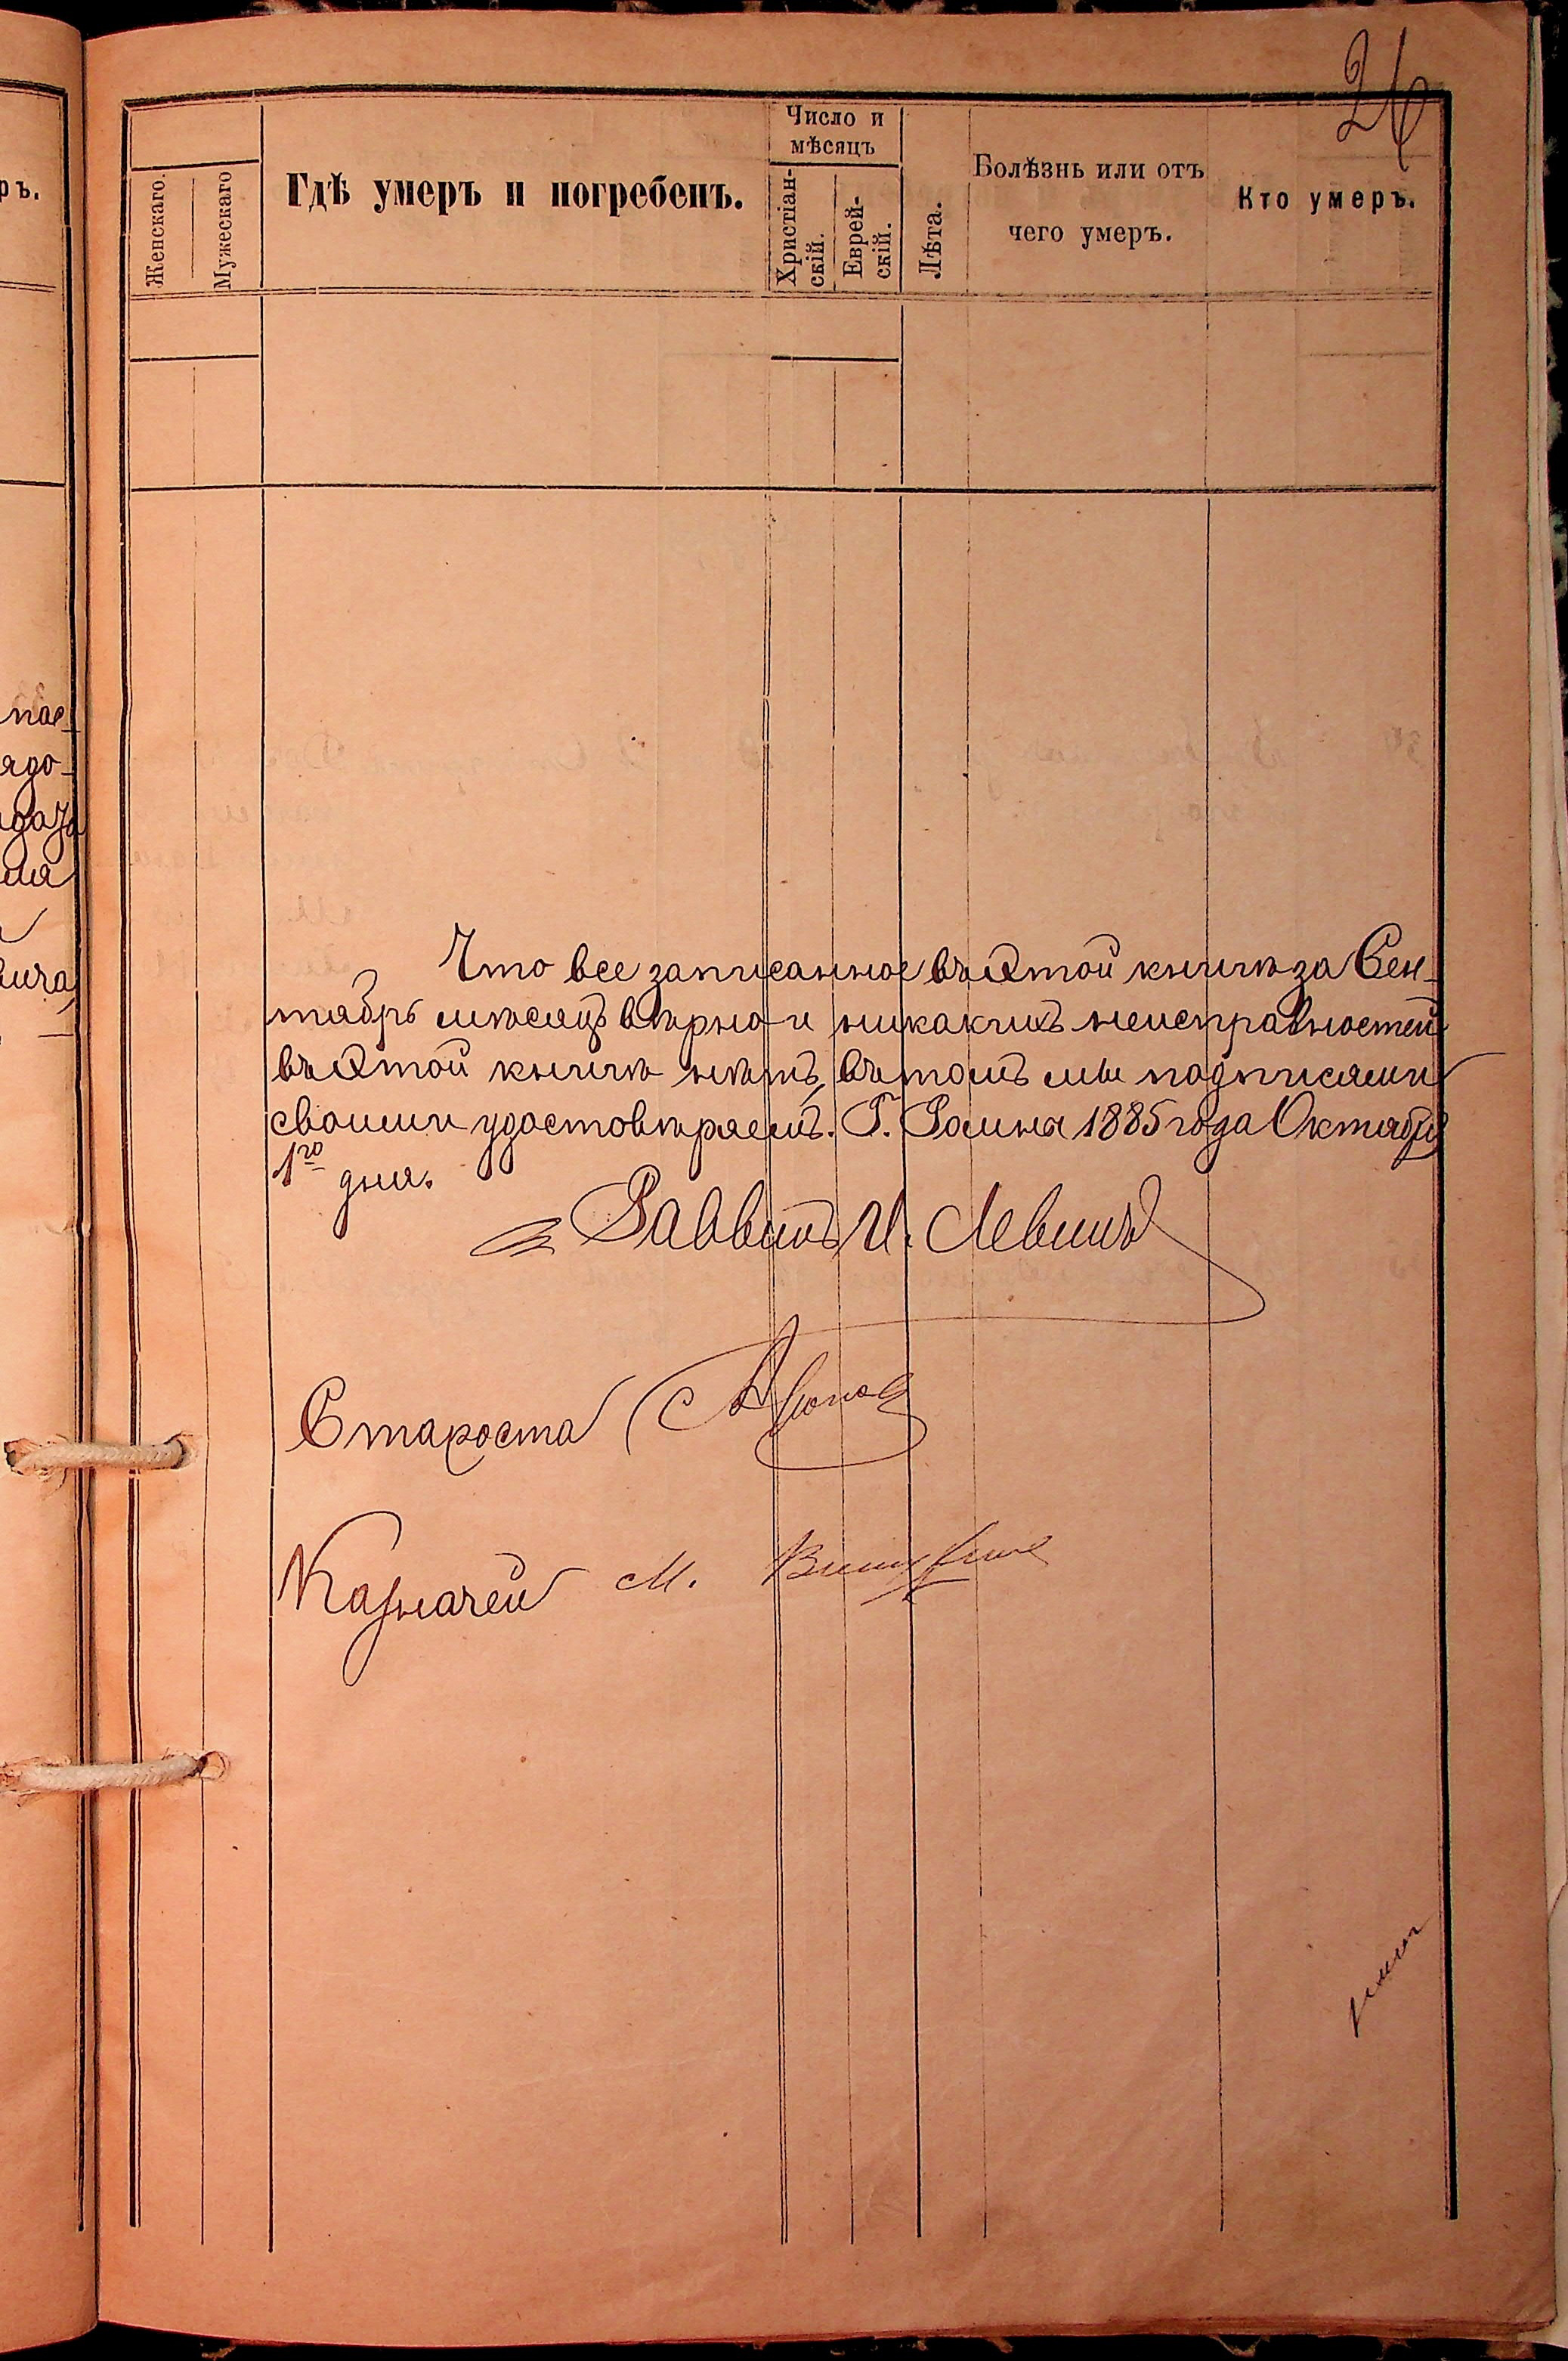 26
Женскаго.
Мужескаго
Гдѣ умеръ и погребенъ.
Число и мѣсяцъ
Христіан-
скій.
Еврей-
скій.
Лѣта.
Болѣзнь или отъ
чего умеръ.
Кто умеръ.
Что все записанное въ этой книгѣ за Сен-
тябрь мѣсяцъ вѣрно и никакихъ неисправностей
въ этой книгѣ нѣтъ, въ томъ мы подписями
своими удостовѣряемъ. Г. Ромна 1885 года Октября
1го дня.
Раввинъ И. Левинъ
Староста
Казначей М.
ръ.